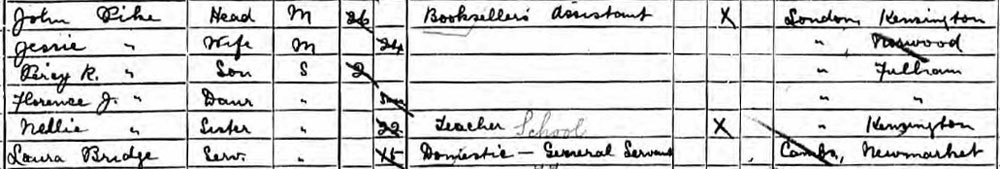 John Pike Head M 26 Bookseller's Assistant X London, Kensington
Jessie " Wife M 24 " Norwood
Percy R. " Son S 2 " Fulham
Florence J. " Daur " " "
Nellie " Sister " 22 Teacher School X " Kensington
Laura Bridge Serv. " 15 Domestic - General Servant Cambs, Newmarket